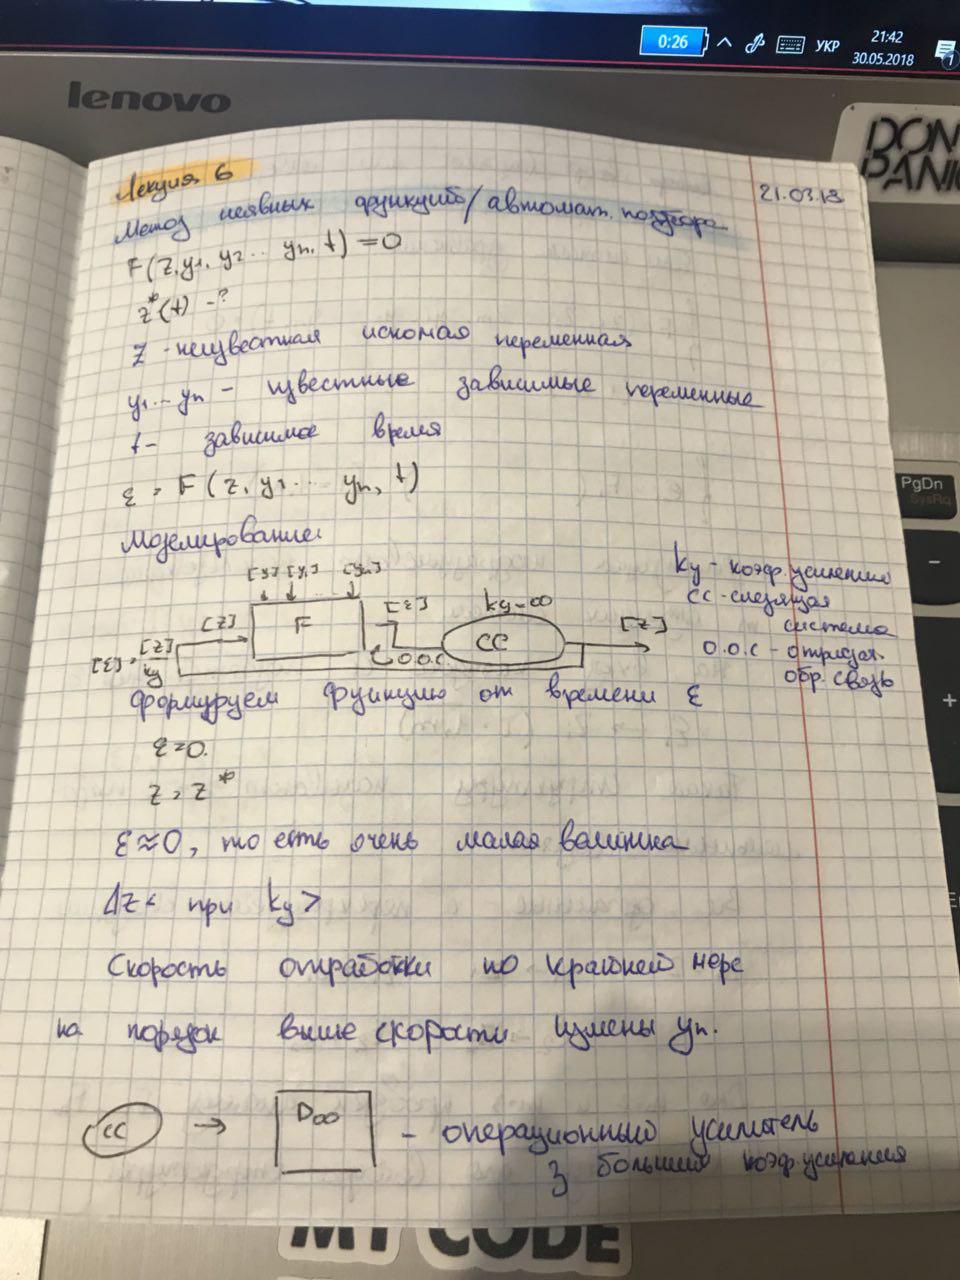 0:26
УКР
21:42
30.05.2018
1
lenovo
DON
PANIC
Лекция 6
21.03.18
Метод неявных функций/автомат. подбора
F(z, y1, y2 ... yn, t) = 0
z*(t) - ?
Z - неизвестная искомая переменная
y1 ... yn - известные зависимые переменные
t - зависимое время
ε = F(z, y1 ... yn, t)
Моделирование:
[y1] [yn]
[z] F [ε] kу=∞ СС [z]
[ε] = [z]/kу
О.О.С.
kу - коэф. усиления
СС - следящая
система
О.О.С - отрицат.
обр. связь
формируем функцию от времени ε
ε=0.
z = z*
ε≈0, то есть очень малая величина
Δz < при kу >
Скорость отработки по крайней мере
на порядок выше скорости измены yn.
СС → D∞ - операционный усилитель
з большим коэф. усиления
PgDn
SysRq
-
+
MY CODE